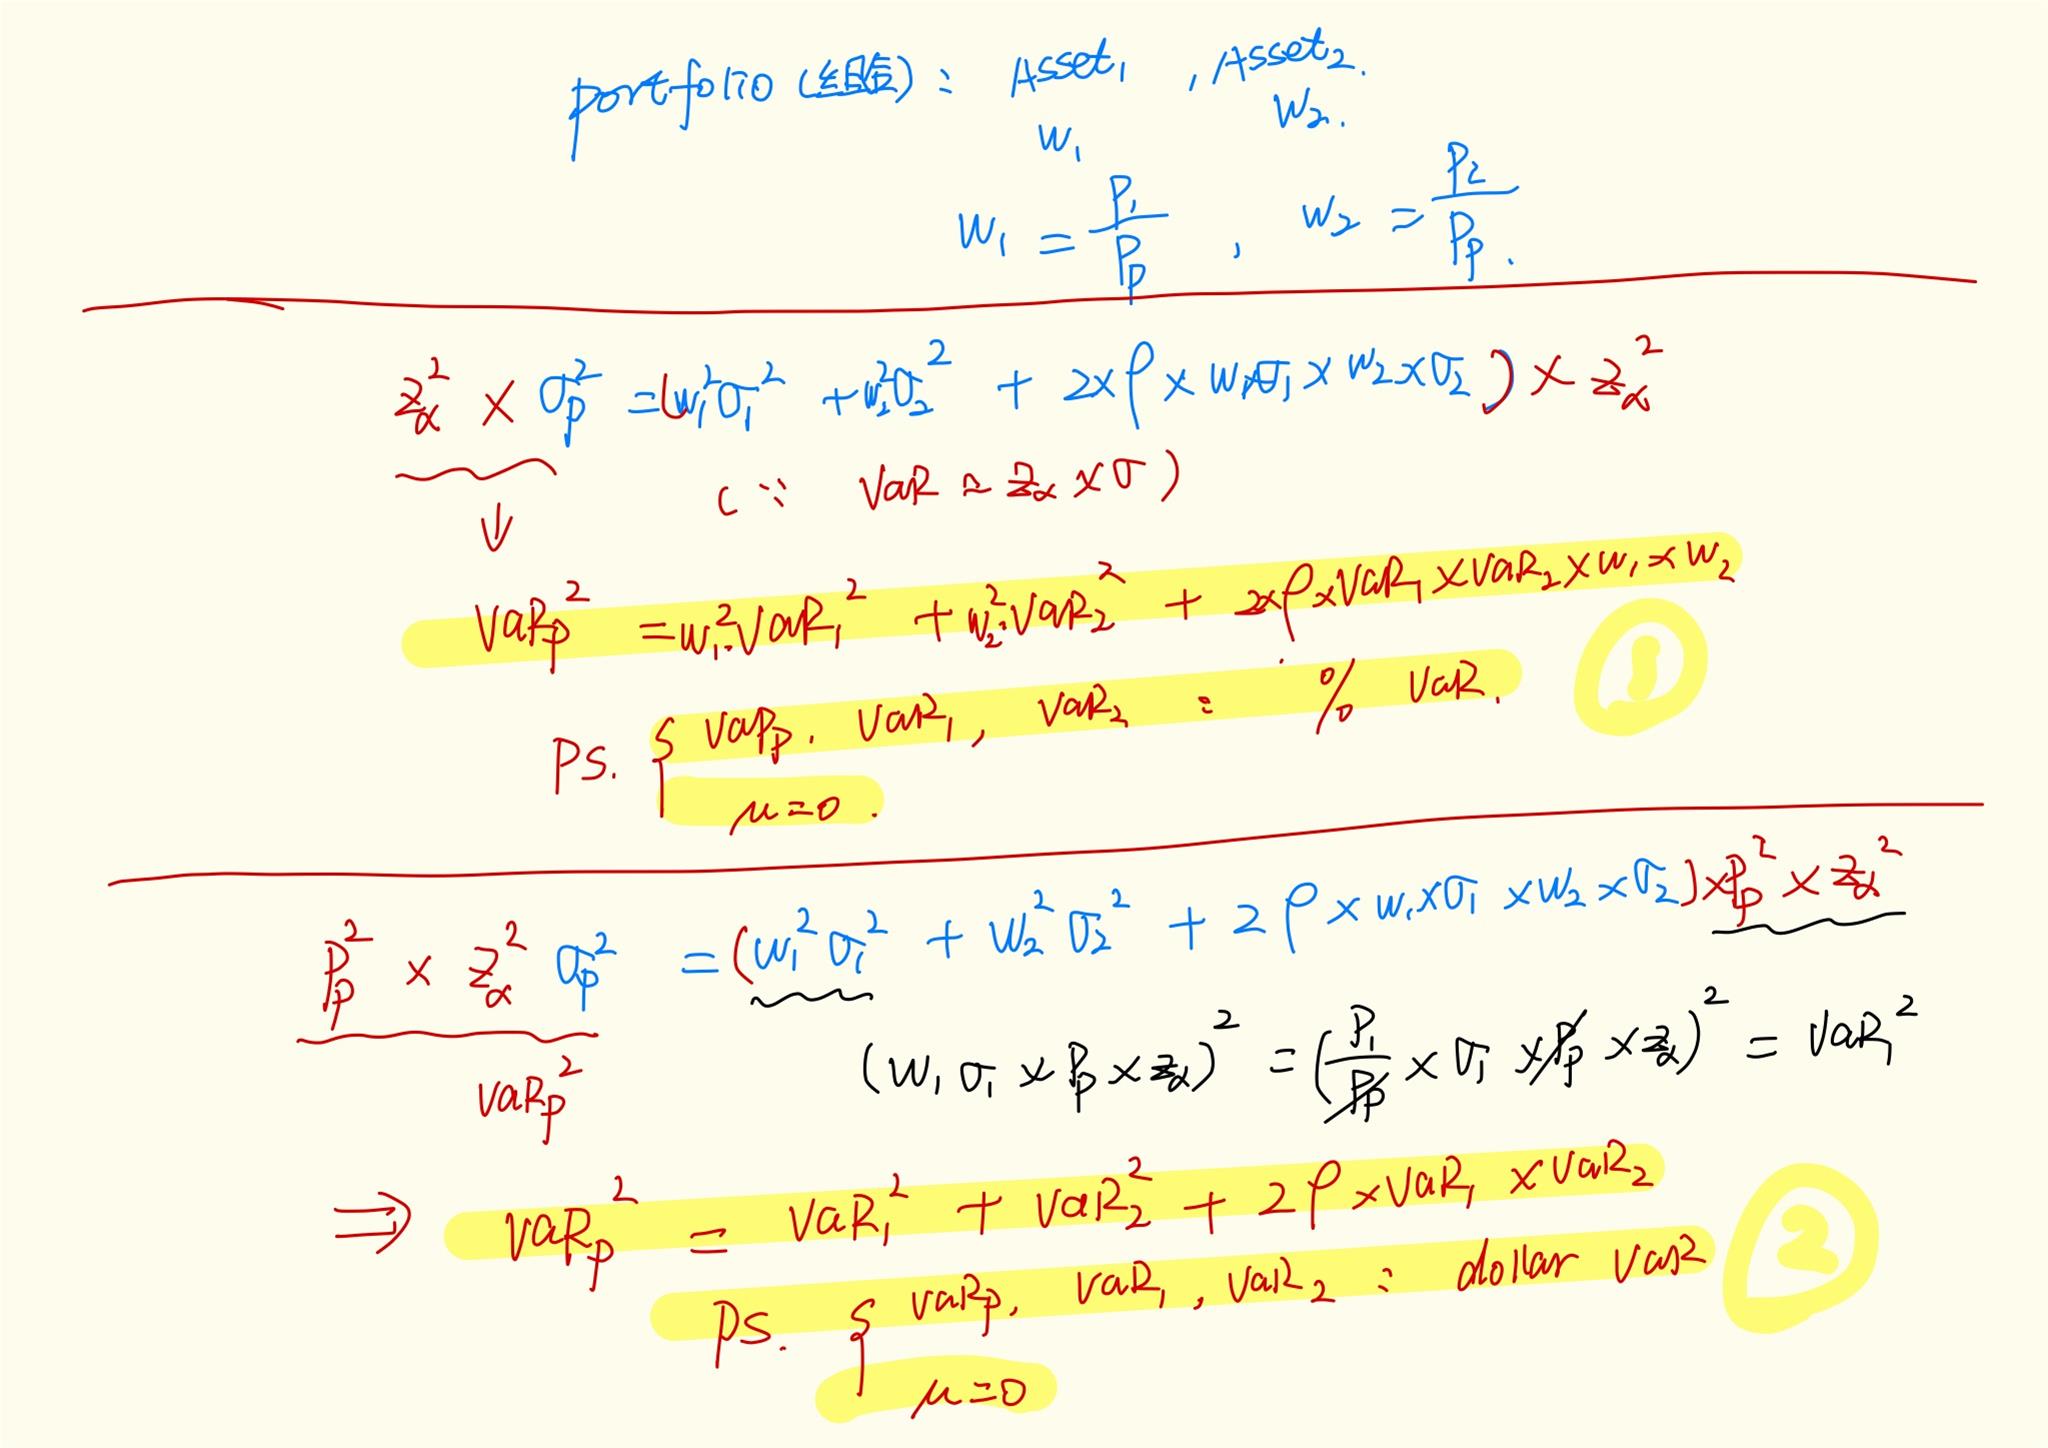 portfolio (组合): Asset₁ , Asset₂.
w₁ w₂.
w₁ = P₁/Pp , w₂ = P₂/Pp .
zα² × σp² = (w₁²σ₁² + w₂²σ₂² + 2×ρ×w₁×σ₁×w₂×σ₂) × zα²
(∵ VaR ≈ zα×σ)
↓
VaRp² = w₁²·VaR₁² + w₂²·VaR₂² + 2×ρ×VaR₁×VaR₂×w₁×w₂
①
PS. { VaRp. VaR₁, VaR₂ : % VaR.
μ=0.
Pp² × zα² σp² = (w₁²σ₁² + w₂²σ₂² + 2ρ×w₁×σ₁×w₂×σ₂)×Pp²×zα²
VaRp²
(w₁σ₁×Pp×zα)² = (P₁/Pp×σ₁×Pp×zα)² = VaR₁²
⇒ VaRp² = VaR₁² + VaR₂² + 2ρ×VaR₁×VaR₂
②
PS. { VaRp, VaR₁, VaR₂ : dollar VaR
μ=0